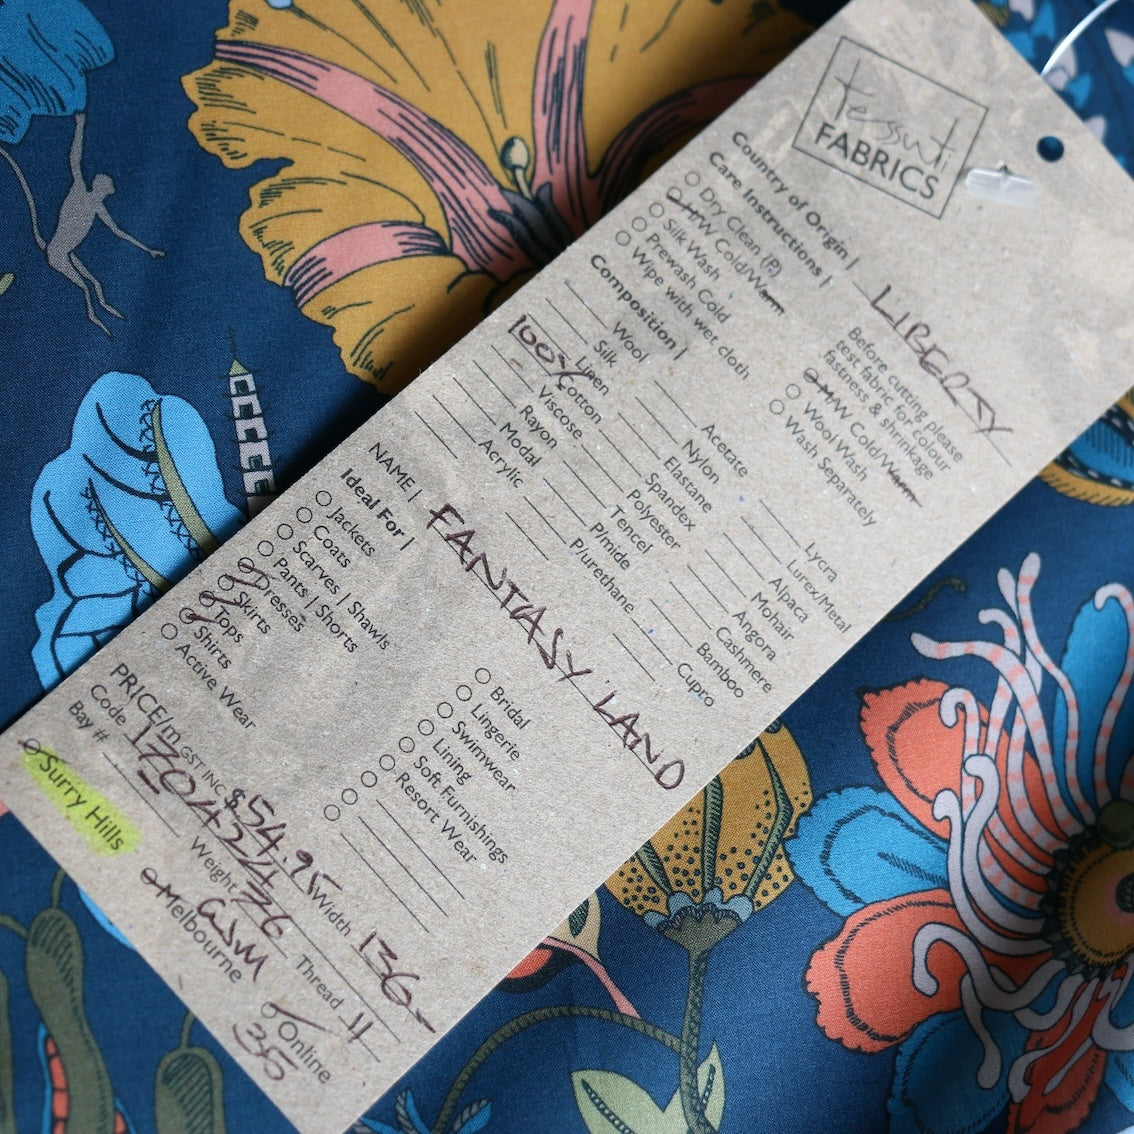 tessuti
FABRICS
Country of Origin | LIBERTY
Care Instructions |
Dry Clean (P)
H/W Cold/Warm
Silk Wash
Prewash Cold
Wipe with wet cloth
Before cutting please
test fabric for colour
fastness & shrinkage
M/W Cold/Warm
Wool Wash
Wash Separately
Composition |
Wool
Silk
Linen
100% Cotton
Viscose
Rayon
Modal
Acrylic
Acetate
Nylon
Elastane
Spandex
Polyester
Tencel
P/mide
P/urethane
Lycra
Lurex/Metal
Alpaca
Mohair
Angora
Cashmere
Bamboo
Cupro
NAME | FANTASY LAND
Ideal For |
Jackets
Coats
Scarves | Shawls
Pants | Shorts
Dresses
Skirts
Tops
Shirts
Active Wear
Bridal
Lingerie
Swimwear
Lining
Soft Furnishings
Resort Wear
PRICE/m GST INC $54.95 Width 136
Code 1704224 Thread 11
Bay # Weight
Surry Hills Melbourne Online
35